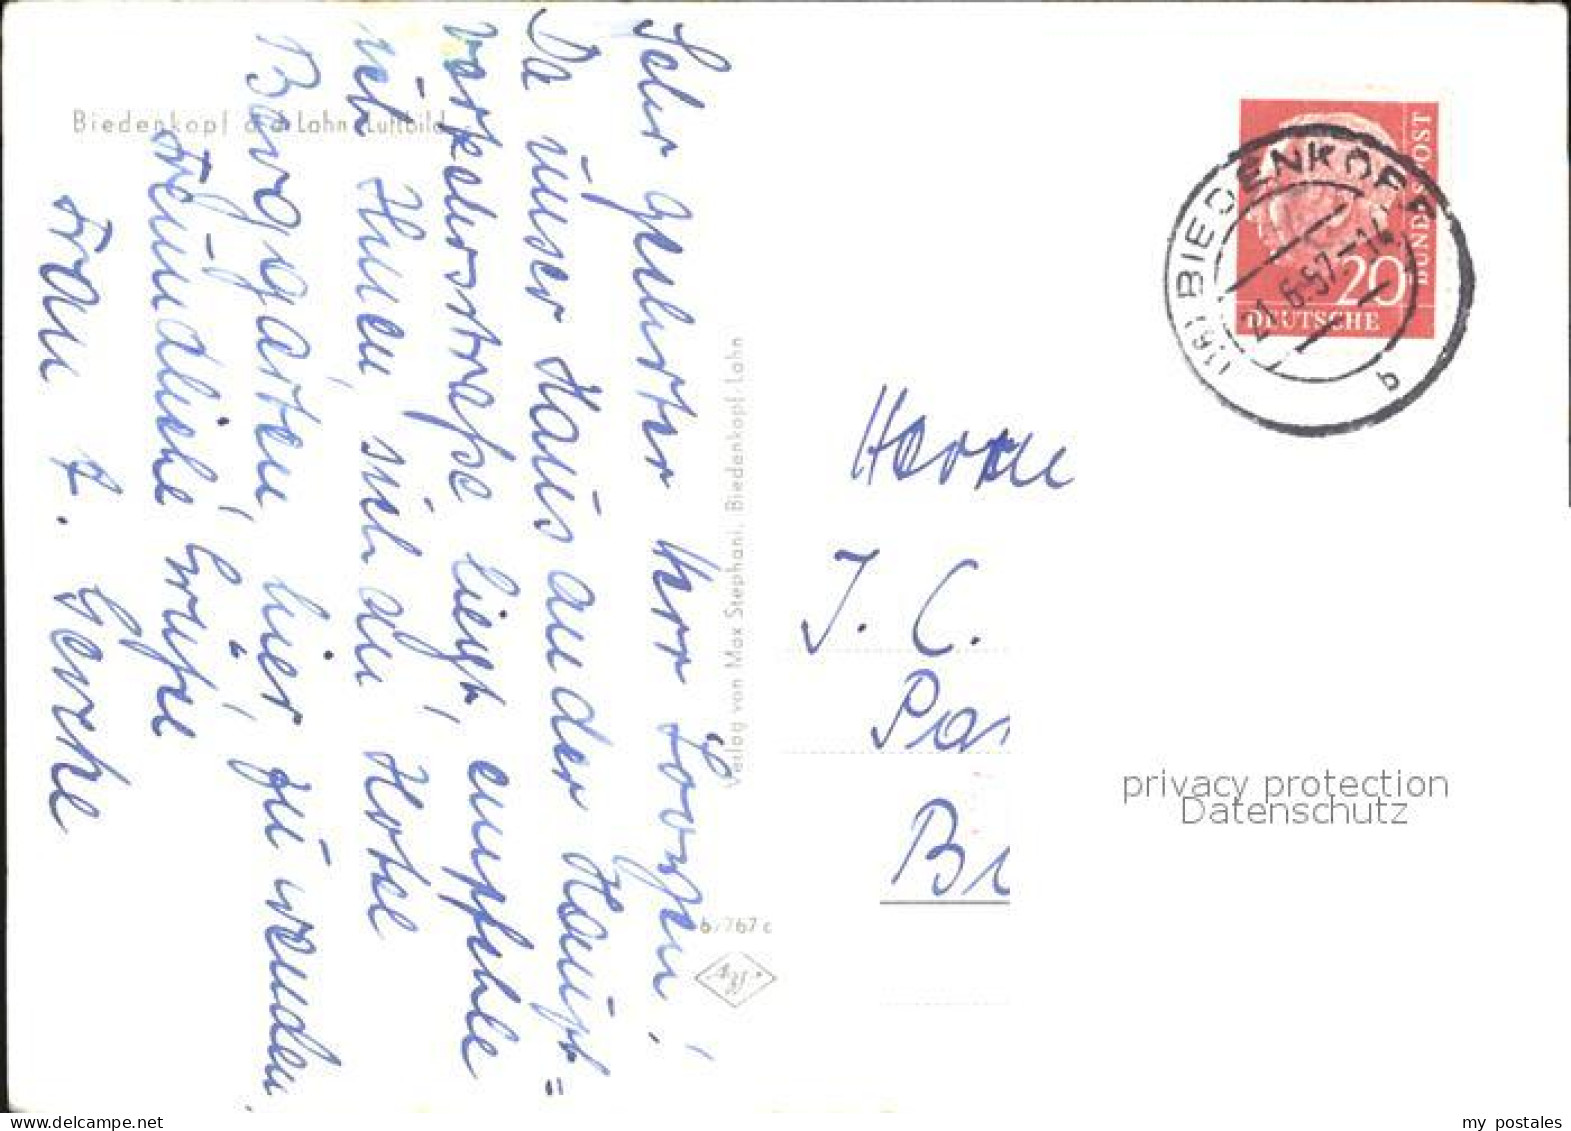 Biedenkopf a. d. Lahn Luftbild
Sehr geehrter Herr
Da unser Haus an der Haupt=
verkehrsstraße liegt, empfehle
ich Ihnen, sich an Hotel
Berggarten, hier, zu wenden.
Freundliche Grüße
Frau A. Gercke
Verlag von Max Stephani, Biedenkopf-Lahn
767 c
(16) BIEDENKOPF
21.6.57.-14
b
20
DEUTSCHE
BUNDESPOST
Herrn
J. C.
privacy protection
Datenschutz
my postales